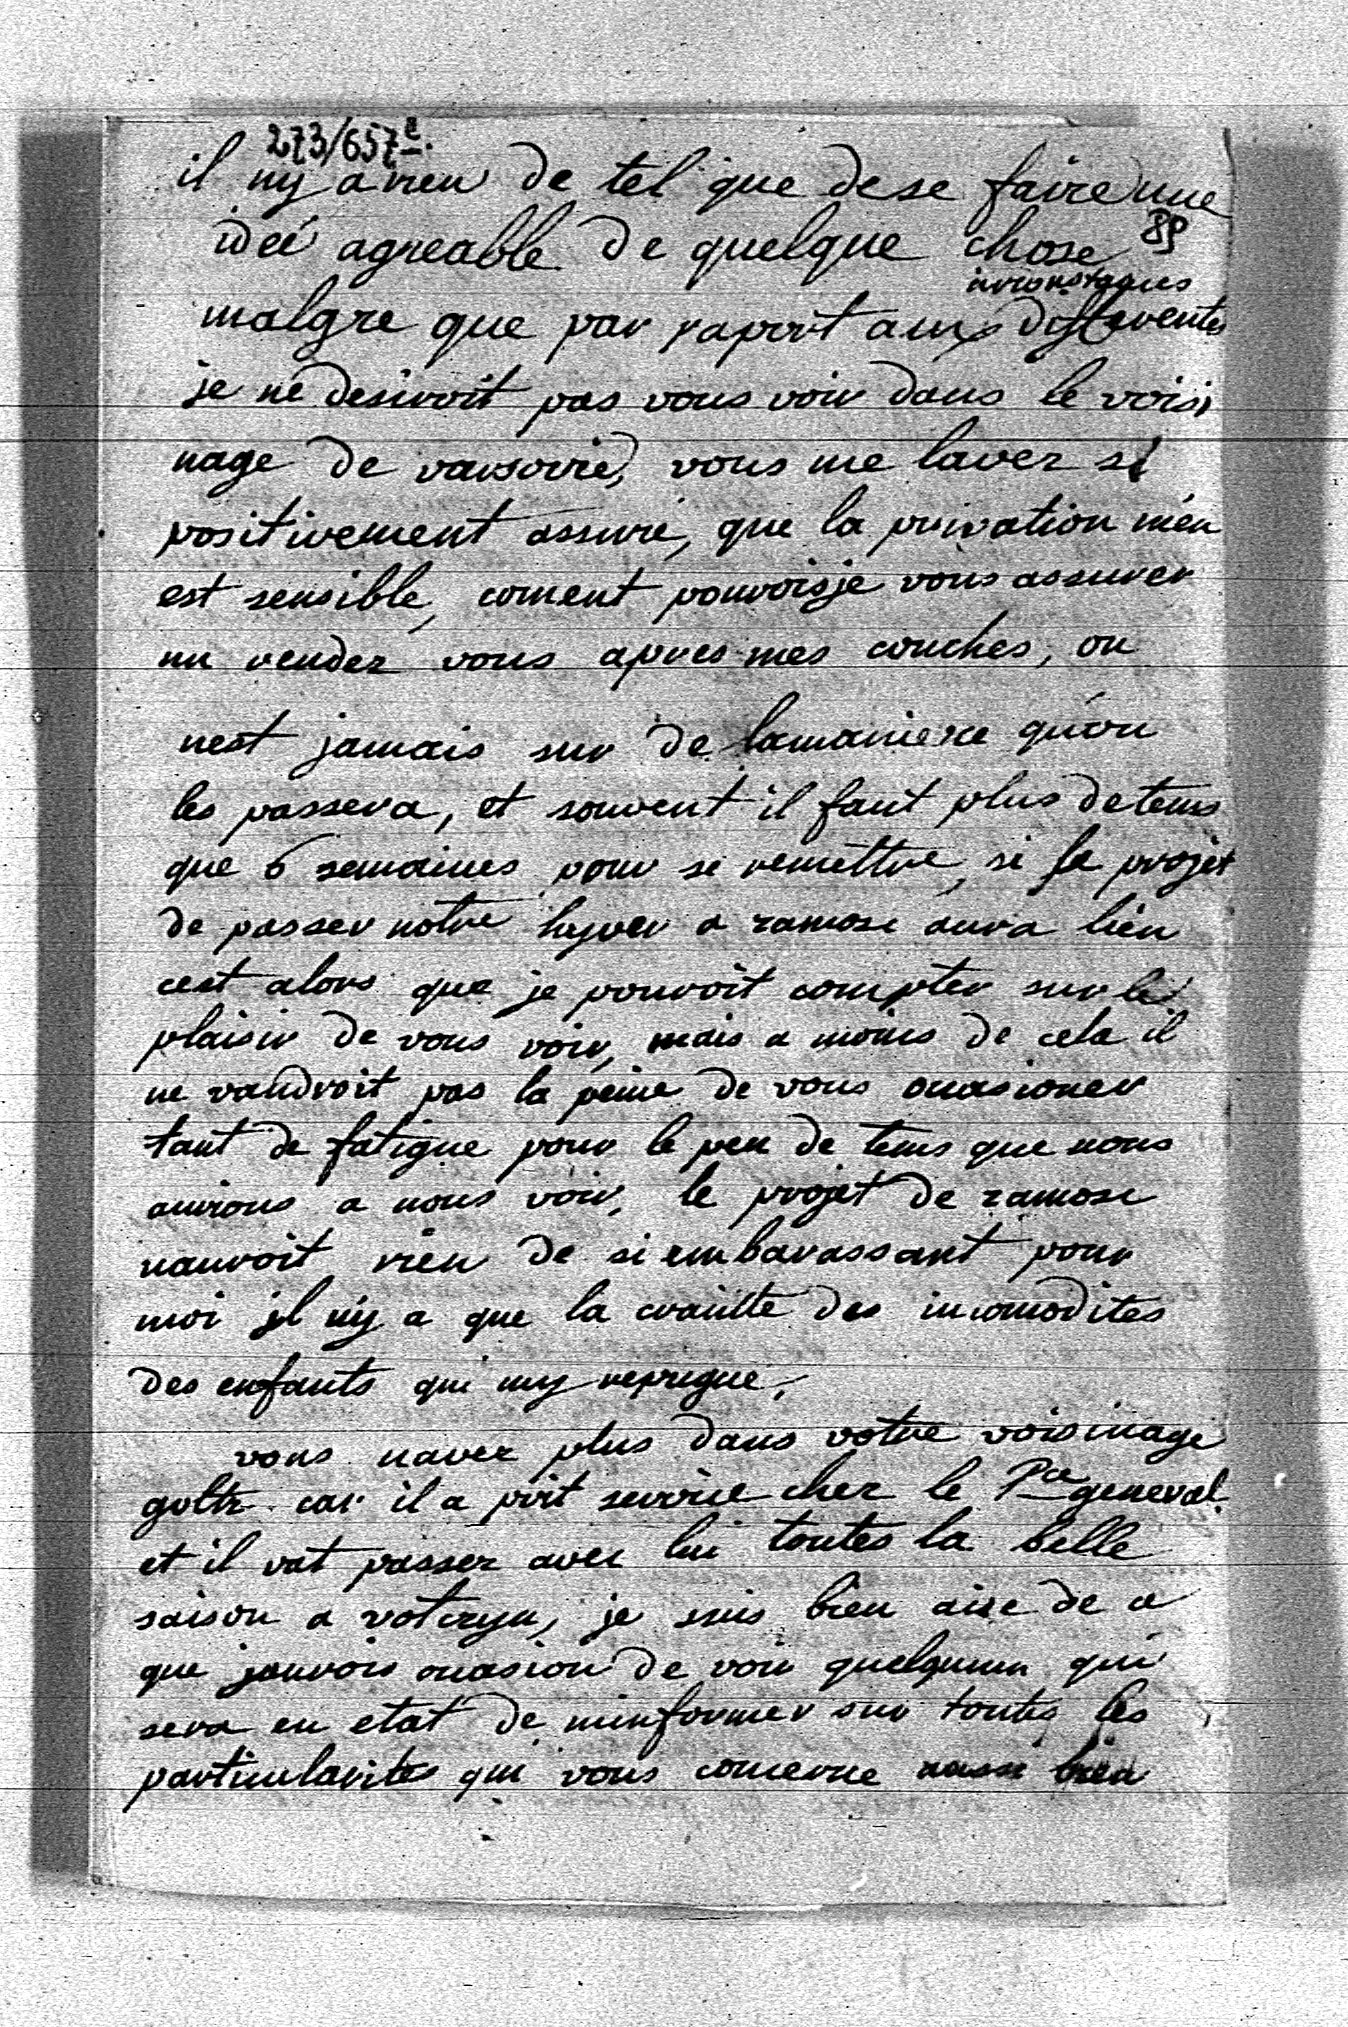 273/657e.
il ny a rien de tel que de se faire une
89
ideé agreable de quelque chose
circonstances
malgre que par raport aux differentes
je ne desiroit pas vous voir dans le voisi
nage de varsovie, vous me lavez si
positivement assuré, que la privation m'en
est sensible, coment pouvoisje vous assurer
un rendez vous apres mes couches, on
nest jamais sur de lamaniere qu'on
les passera, et souvent il faut plus de tems
que 6 semaines pour se remettre, si le projet
de passer notre hyver a zamosc aura lieu
cest alors que je pouroit compter sur le
plaisir de vous voir, mais a moins de cela il
ne vaudroit pas la peine de vous ocasioner
tant de fatigue pour le peu de tems que nous
aurions a nous voir, le projet de zamosc
nauroit rien de si embarassant pour
moi il n'y a que la crainte des incomodites
des enfants qui my repugue,
vous navez plus dans votre voisinage
goltz car il a prit service chez le Pce general
et il vat passer avec lui toutes la belle
saison a volczyn, je suis bien aise de ce
que jaurois ocasion de voir quelqunn qui
sera en etat de minformer sur toutes les
particularites qui vous concerne aussi bien